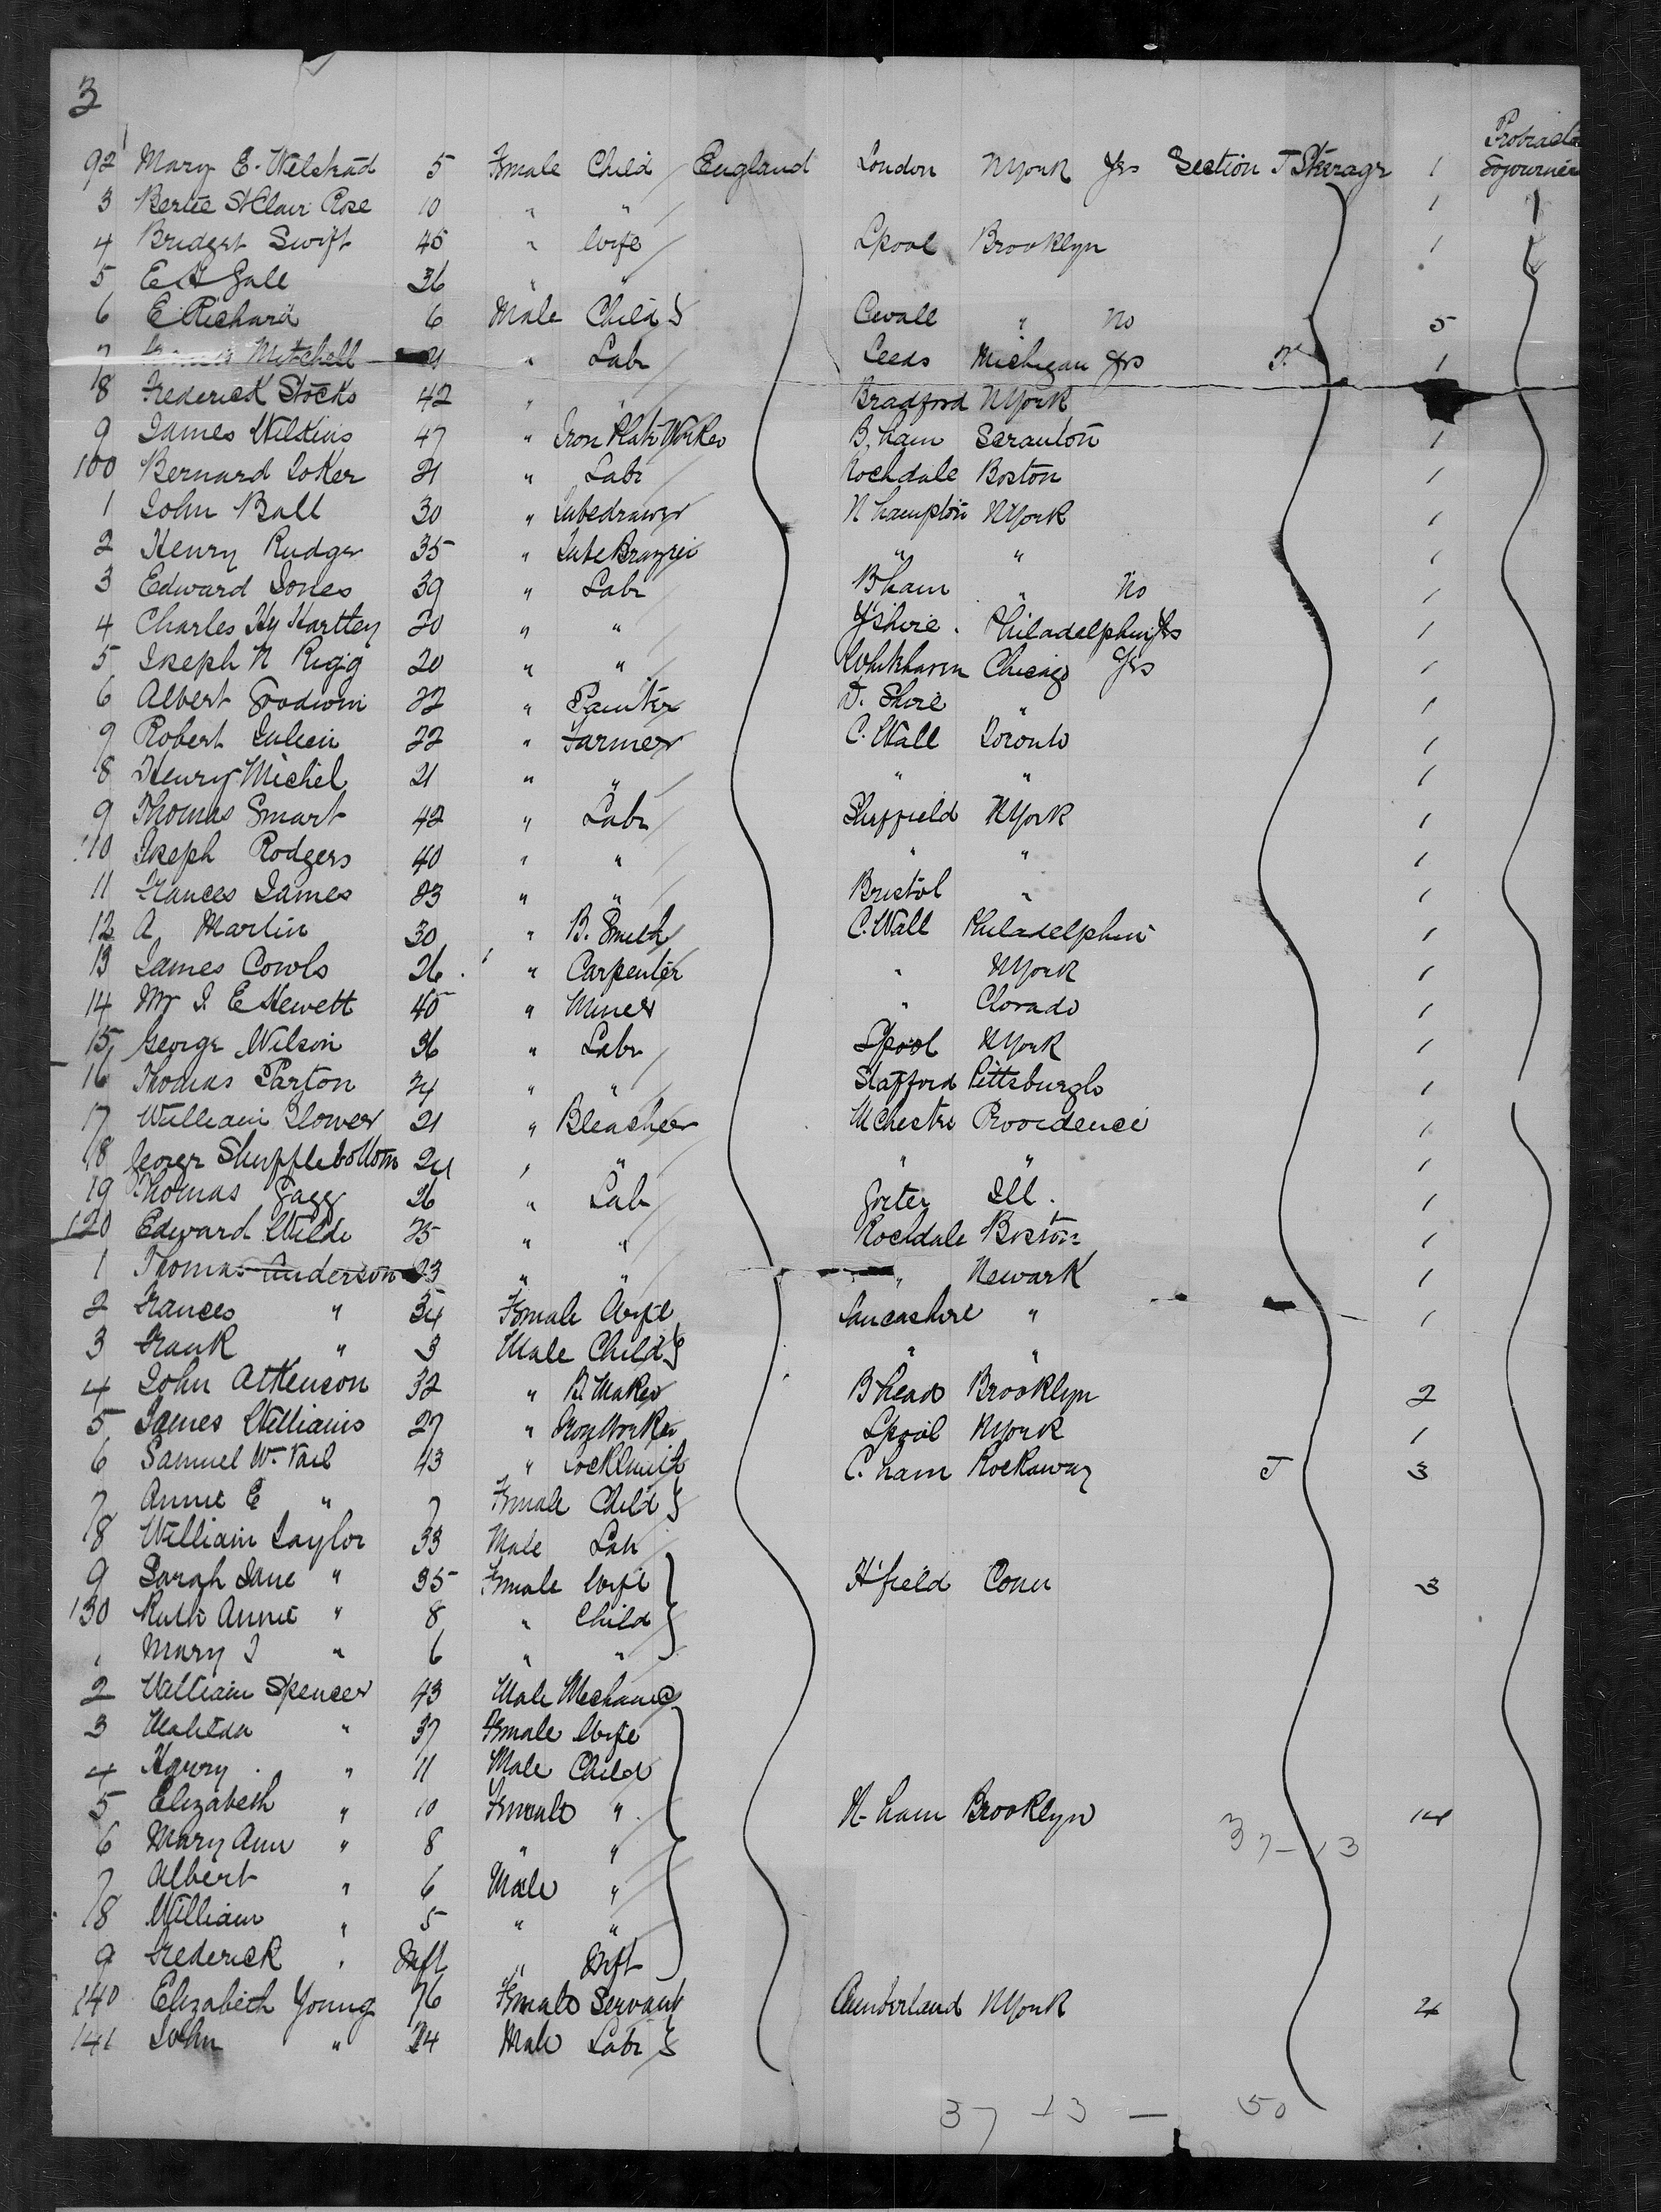 3
Protracted
92 Mary E. Welstead 5 Female Child England London NYork Yes Section J Steerage 1 Sojourners
3 Bertie St Clair Rose 10 " " 1
4 Bridget Swift 45 " Wife Lpool Brooklyn 1
5 E A Gall 36 " "
6 E Richard 6 Male Child Cwall " No 5
7 Mitchell 21 " Labr Leeds Michigan Yes J. 1
8 Frederick Stocks 42 " " Bradford NYork
9 James Wilkins 47 " Iron Plate Worker B.ham Scranton 1
100 Bernard Joker 21 " Labr Rochdale Boston 1
1 John Ball 30 " Tubedrawer N hampton NYork 1
2 Henry Rudger 35 " Tube " " 1
3 Edward Jones 39 " Labr Bham " No 1
4 Charles Hy Hartley 20 " " Yshire. Philadelphia Yes 1
5 Joseph N Rigg 20 " " Whitehaven Chicago Yes 1
6 Albert Goodwin 22 " Painter D. Shire " 1
7 Robert Julien 22 " Farmer C. Wall Toronto 1
8 Henry Michel 21 " " " " 1
9 Thomas Smart 42 " Labr Sheffield NYork 1
110 Joseph Rodgers 40 " " " " 1
11 Frances James 23 " " Bristol " 1
12 A Martin 30 " B. Smith C. Wall Philadelphia 1
13 James Cowls 26 " Carpenter " NYork 1
14 Mr J. E Hewett 40 " Miner " Clorado 1
15 George Wilson 36 " Labr Lpool NYork 1
16 Thomas Parton 24 " " Stafford Pittsburgh 1
17 William Flower 21 " Bleacher MChester Providence 1
18 George Shufflebottom 24 " " " " 1
19 Thomas Gagg 26 " Lab Ill. 1
120 Edward Wilde 25 " " Rochdale Boston 1
1 Thomas Anderson 23 " " " Newark 1
2 Frances " 34 Female Wife Lancashire " 1
3 Frank " 3 Male Child " "
4 John Atkinson 32 " B. Maker Bhead Brooklyn 2
5 James Williams 27 " Iron Worker Lpool NYork 1
6 Samuel W. Vail 43 " Locksmith C. ham Rockaway J 3
7 Annie E " 7 Female Child
8 William Taylor 33 Male Lab
9 Sarah Jane " 35 Female Wife H'field Conn 3
130 Ruth Annie " 8 " Child
1 Mary J " 6 " "
2 William Spencer 43 Male Mechanic
3 Matilda " 37 Female Wife
4 Harry " 11 Male Child
5 Elizabeth " 10 Female " N-ham Brooklyn 14
6 Mary Ann " 8 " " 37-13
7 Albert " 6 Male "
8 William " 5 " "
9 Frederick " Inft " Inft
140 Elizabeth Young 76 Female Servant Cumberland NYork 4
141 John " 24 Male Labr
37 13 — 50